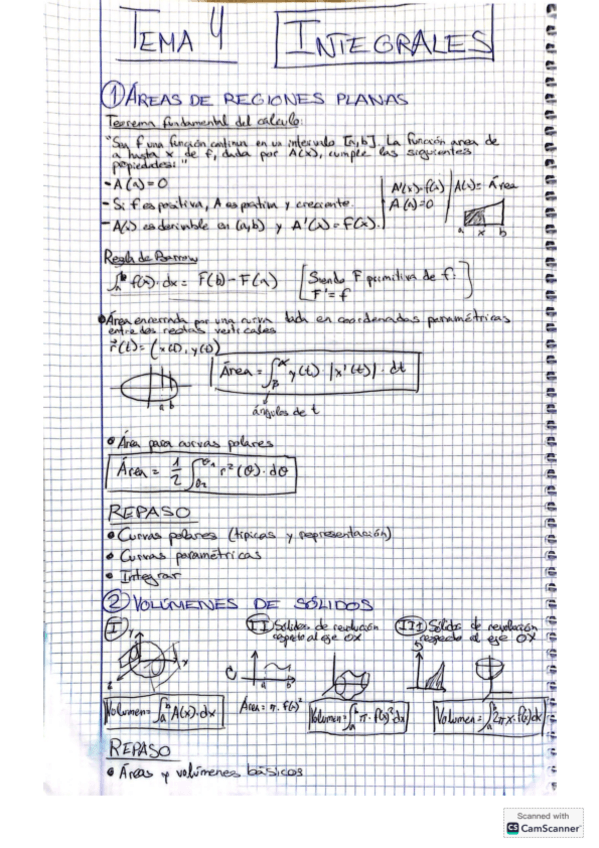 TEMA 4 INTEGRALES
① ÁREAS DE REGIONES PLANAS
Teorema fundamental del cálculo:
"Sea f una función continua en un intervalo [a,b]. La función area de
a hasta x de f, dada por A(x), cumple las siguientes
propiedades:"
- A(a)=0
- Si f es positiva, A es positiva y creciente.
- A(x) es derivable en (a,b) y A'(x)=f(x).
A'(x)=f(x) A(x)= Área
A(a)=0
a x b
Regla de Barrow
∫ₐᵇ f(x)·dx = F(b)-F(a) [Siendo F primitiva de f:
F'=f]
• Área encerrada por una curva dada en coordenadas paramétricas
entre dos rectas verticales
r⃗(t)=(x(t), y(t))
Área = ∫ y(t)·|x'(t)|·dt
a b
ángulos de t
• Área para curvas polares
Área = 1/2 ∫ r²(θ)·dθ
REPASO
• Curvas polares (típicas y representación)
• Curvas paramétricas
• Integrar
② VOLÚMENES DE SÓLIDOS
I II Sólidos de revolución III Sólidos de revolución
respecto al eje OX respecto al eje OX
a b
Volumen=∫ₐᵇ A(x)·dx Área=π·f(x)² Volumen=∫ₐᵇ π·f(x)²dx Volumen=∫ₐᵇ 2πx·f(x)dx
REPASO
• Áreas y volúmenes básicos
Scanned with
CS CamScanner